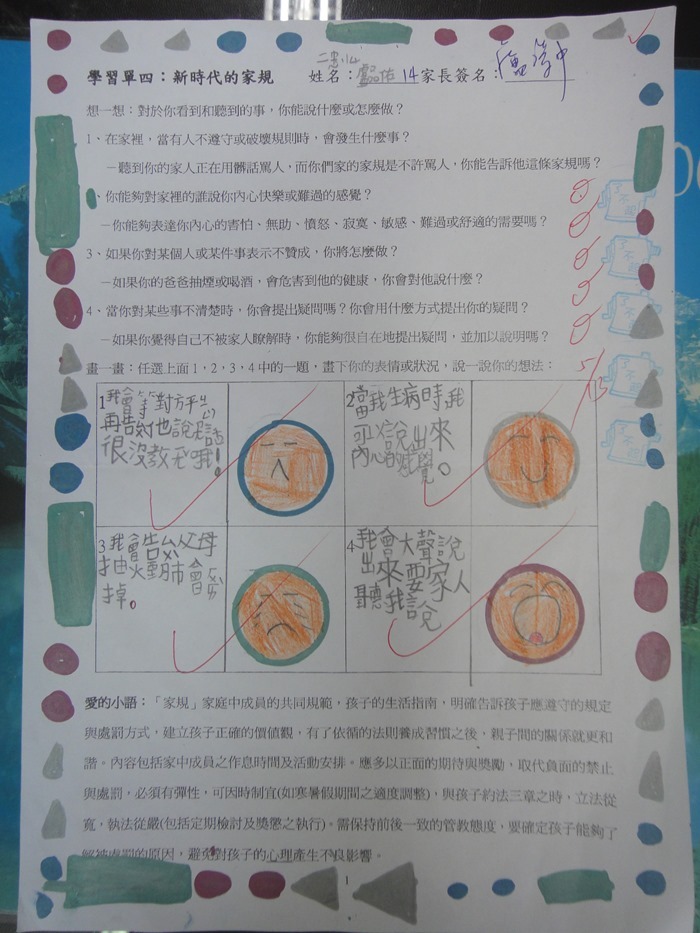 二忠14
學習單四：新時代的家規 姓名：盧品佑 14 家長簽名：
想一想：對於你看到和聽到的事，你能說什麼或怎麼做？
1、在家裡，當有人不遵守或破壞規則時，會發生什麼事？
－聽到你的家人正在用髒話罵人，而你們家的家規是不許罵人，你能告訴他這條家規嗎？
、你能夠對家裡的誰說你內心快樂或難過的感覺？
－你能夠表達你內心的害怕、無助、憤怒、寂寞、敏感、難過或舒適的需要嗎？
3、如果你對某個人或某件事表示不贊成，你將怎麼做？
－如果你的爸爸抽煙或喝酒，會危害到他的健康，你會對他說什麼？
4、當你對某些事不清楚時，你會提出疑問嗎？你會用什麼方式提出你的疑問？
－如果你覺得自己不被家人瞭解時，你能夠很自在地提出疑問，並加以說明嗎？
畫一畫：任選上面1，2，3，4中的一題，畫下你的表情或狀況，說一說你的想法：
5/13
1我會等對方平
再告訴他說
很沒教養哦！
2當我生病時,我
可以說出來
內心的感覺。
3我會告訴父母
抽火重肺會
掉。
4我會大聲說
出來要家人
聽我說
愛的小語：「家規」家庭中成員的共同規範，孩子的生活指南，明確告訴孩子應遵守的規定
與處罰方式，建立孩子正確的價值觀，有了依循的法則養成習慣之後，親子間的關係就更和
諧。內容包括家中成員之作息時間及活動安排。應多以正面的期待與獎勵，取代負面的禁止
與處罰，必須有彈性，可因時制宜(如寒暑假期間之適度調整)，與孩子約法三章之時，立法從
寬，執法從嚴(包括定期檢討及獎懲之執行)。需保持前後一致的管教態度，要確定孩子能夠了
解被處罰的原因，避免對孩子的心理產生不良影響。
1